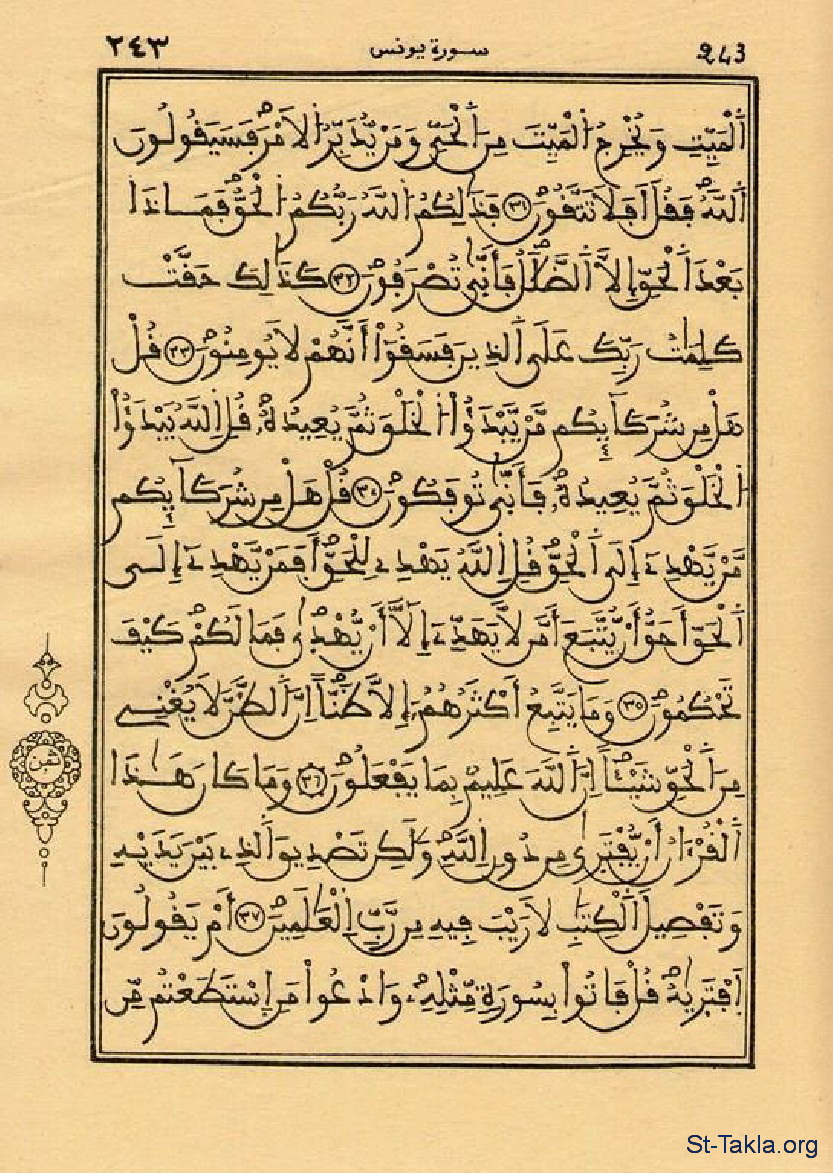 243 سورة يونس ٢٤٣
اَ۬لْمَيِّتِ وَيُخْرِجُ اُ۬لْمَيِّتَ مِنَ اَ۬لْحَيِّ وَمَنْ يُّدَبِّرُ اُ۬لَامْرَ فَسَيَقُولُونَ
اَ۬للَّهُ فَقُلَ اَفَلَا تَتَّقُونَ ٣١ فَذَٰلِكُمُ اُ۬للَّهُ رَبُّكُمُ اُ۬لْحَقُّ فَمَاذَا
بَعْدَ اَ۬لْحَقِّ إِلَّا اَ۬لضَّلَٰلُ فَأَنّ۪يٰ تُصْرَفُونَ ٣٢ كَذَٰلِكَ حَقَّتْ
كَلِمَٰتُ رَبِّكَ عَلَى اَ۬لذِينَ فَسَقُوٓاْ أَنَّهُمْ لَا يُومِنُونَ ٣٣ قُلْ
هَلْ مِن شُرَكَآئِكُم مَّنْ يَّبْدَؤُاْ اُ۬لْخَلْقَ ثُمَّ يُعِيدُهُۥ قُلِ اِ۬للَّهُ يَبْدَؤُاْ
اُ۬لْخَلْقَ ثُمَّ يُعِيدُهُۥ فَأَنّ۪يٰ تُوفَكُونَ ٣٤ قُلْ هَلْ مِن شُرَكَآئِكُم
مَّنْ يَّهْدِےٓ إِلَى اَ۬لْحَقِّ قُلِ اِ۬للَّهُ يَهْدِے لِلْحَقِّ أَفَمَنْ يَّهْدِےٓ إِلَى
اَ۬لْحَقِّ أَحَقُّ أَنْ يُّتَّبَعَ أَمَّن لَّا يَهَدِّےٓ إِلَّآ أَنْ يُّهْد۪يٰ فَمَا لَكُمْ كَيْفَ
تَحْكُمُونَ ٣٥ وَمَا يَتَّبِعُ أَكْثَرُهُمُۥٓ إِلَّا ظَنّاً اِنَّ اَ۬لظَّنَّ لَا يُغْنِے
مِنَ اَ۬لْحَقِّ شَيْـٔاً اِنَّ اَ۬للَّهَ عَلِيمٌ بِمَا يَفْعَلُونَ ٣٦ وَمَا كَانَ هَٰذَا
اَ۬لْقُرْءَانُ أَنْ يُّفْتَر۪يٰ مِن دُونِ اِ۬للَّهِ وَلَٰكِن تَصْدِيقَ اَ۬لذِے بَيْنَ يَدَيْهِ
وَتَفْصِيلَ اَ۬لْكِتَٰبِ لَا رَيْبَ فِيهِ مِن رَّبِّ اِ۬لْعَٰلَمِينَ ٣٧ أَمْ يَقُولُونَ
اَ۪فْتَر۪يٰهُ قُلْ فَاتُواْ بِسُورَةٍ مِّثْلِهِۦ وَادْعُواْ مَنِ اِ۪سْتَطَعْتُم مِّن
ثمن
St-Takla.org